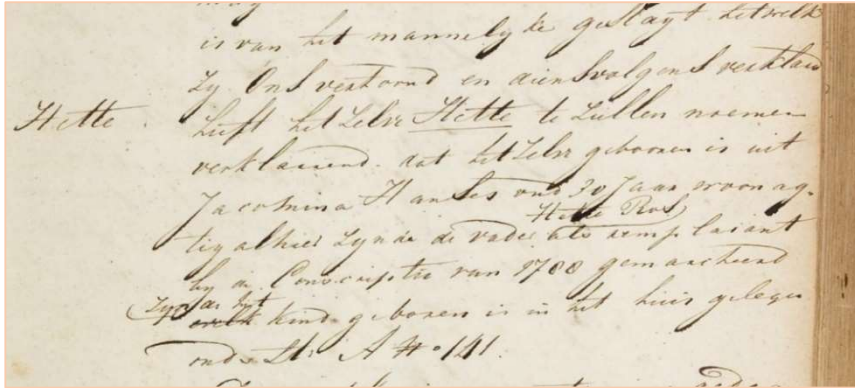 is van het mannelyke geslagt hetwelk
zy Ons vertoond en diensvolgens verklaard
Hette. heeft het Zelve Hette te Zullen noemen
verklarend dat het Zelve gebooren is uit
Jacomina Hanses oud 30 Jaar woonag-
Hette Rol
tig alhier Zynde de vader als remplaisant
by de Conscriptie van 1788 gemarcheerd
Zynde het
kind gebooren is in het huis gelegen
onder Lr: A No 141.